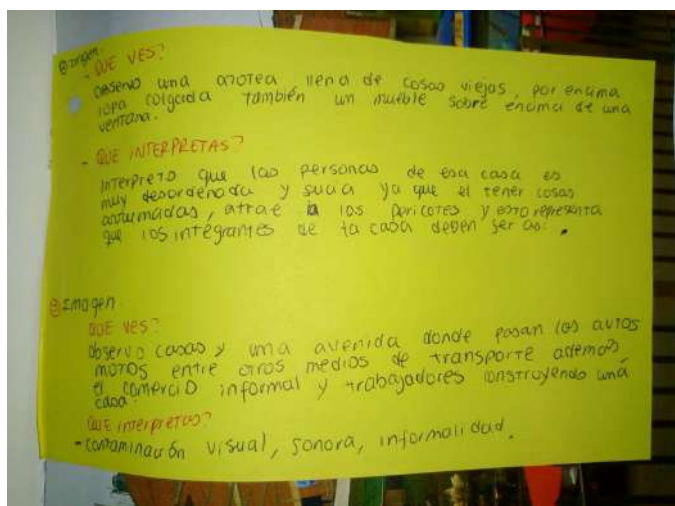 Imagen.
- QUE VES?
Observo una azotea llena de cosas viejas, por encima
ropa colgada también un mueble sobre encima de una
ventana.
- QUE INTERPRETAS?
Interpreto que las personas de esa casa es
muy desordenada y sucia ya que el tener cosas
acumuladas, atrae a los pericotes y esto representa
que los integrantes de la casa deben ser así.
Imagen.
QUE VES?
Observo casas y una avenida donde pasan los autos
motos entre otros medios de transporte además
el comercio informal y trabajadores construyendo una
casa.
QUE interpretas?
- contaminación visual, sonora, informalidad.